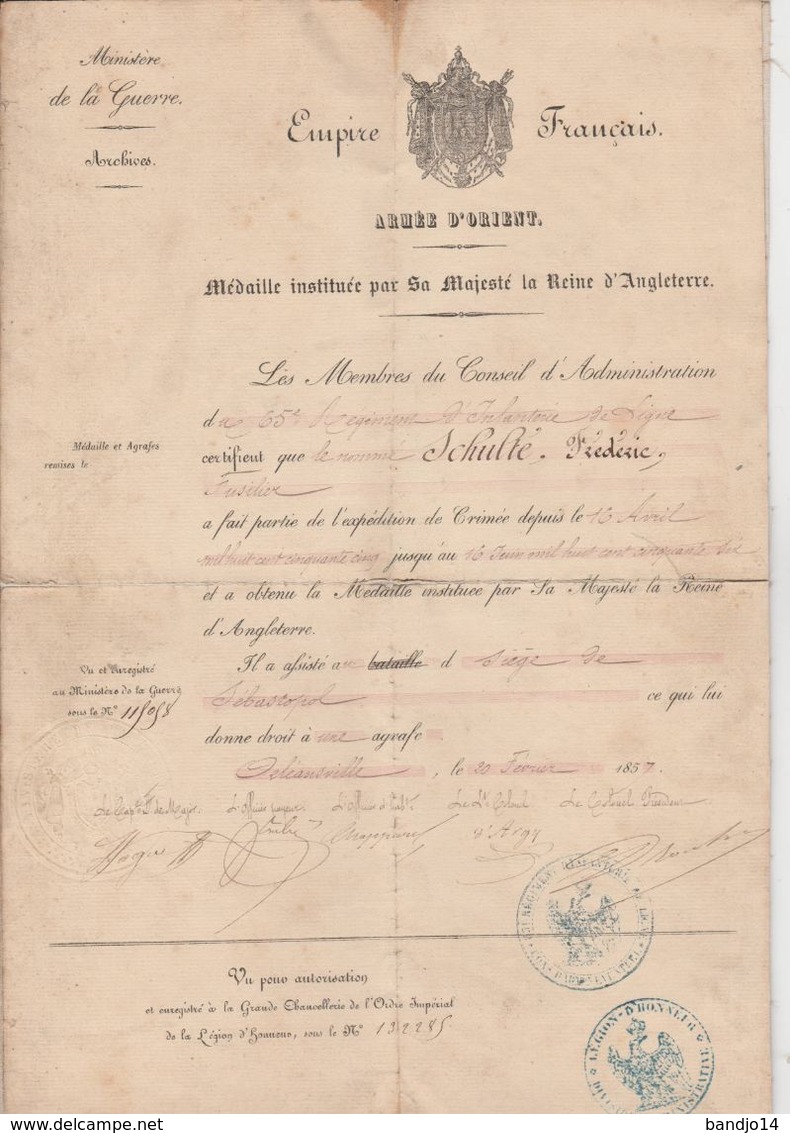 Ministère
de la Guerre.
Archives.
Empire Français.
ARMÉE D'ORIENT.
Médaille instituée par Sa Majesté la Reine d'Angleterre.
Les Membres du Conseil d'Administration
du 65e Régiment d'Infanterie de Ligne
Médaille et Agrafes
remises le
certifient que le nommé Schulté, Frédéric,
Fusilier
a fait partie de l'expédition de Crimée depuis le 16 Avril
mil huit cent cinquante cinq jusqu'au 16 Juin mil huit cent cinquante six
et a obtenu la Médaille instituée par Sa Majesté la Reine
d'Angleterre.
Vu et enregistré
au Ministère de la Guerre
sous le No 115058
Il a assisté au bataille d Siège de
Sébastopol ce qui lui
donne droit à une agrafe
Orléansville, le 20 Février 1857.
Le Cap. de Major. L'Officier payeur L'Officier d'habt. Le Lt Colonel Le Colonel Président
d'Argy
RÉGIMENT D'INFANTERIE DE LIGNE
CON. D'ADMON. EVENTUEL
Vu pour autorisation
et enregistré à la Grande Chancellerie de l'Ordre Impérial
de la Légion d'honneur, sous le No 132285
LÉGION-D'HONNEUR
DIVISION ADMINISTRATIVE
bandjo14